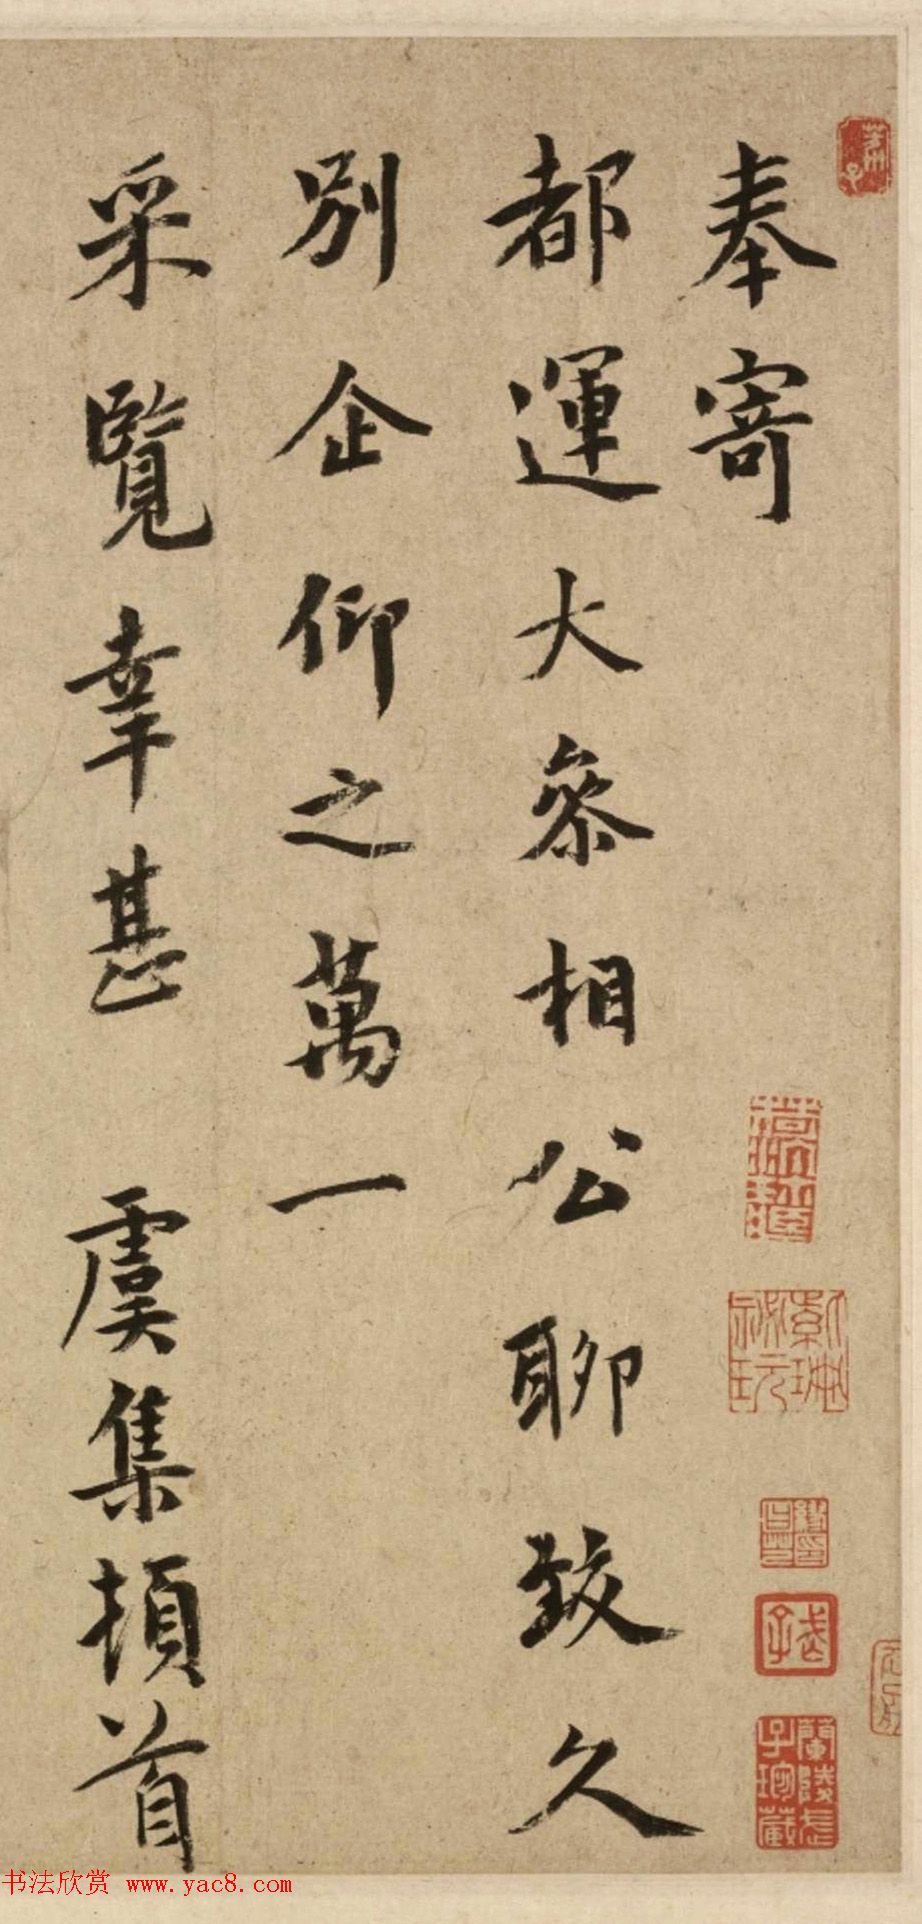 奉寄
都運大參相公聊致久
別企仰之萬一
采覽幸甚 虞集頓首
蘭陵
子珍藏
书法欣赏 www.yac8.com